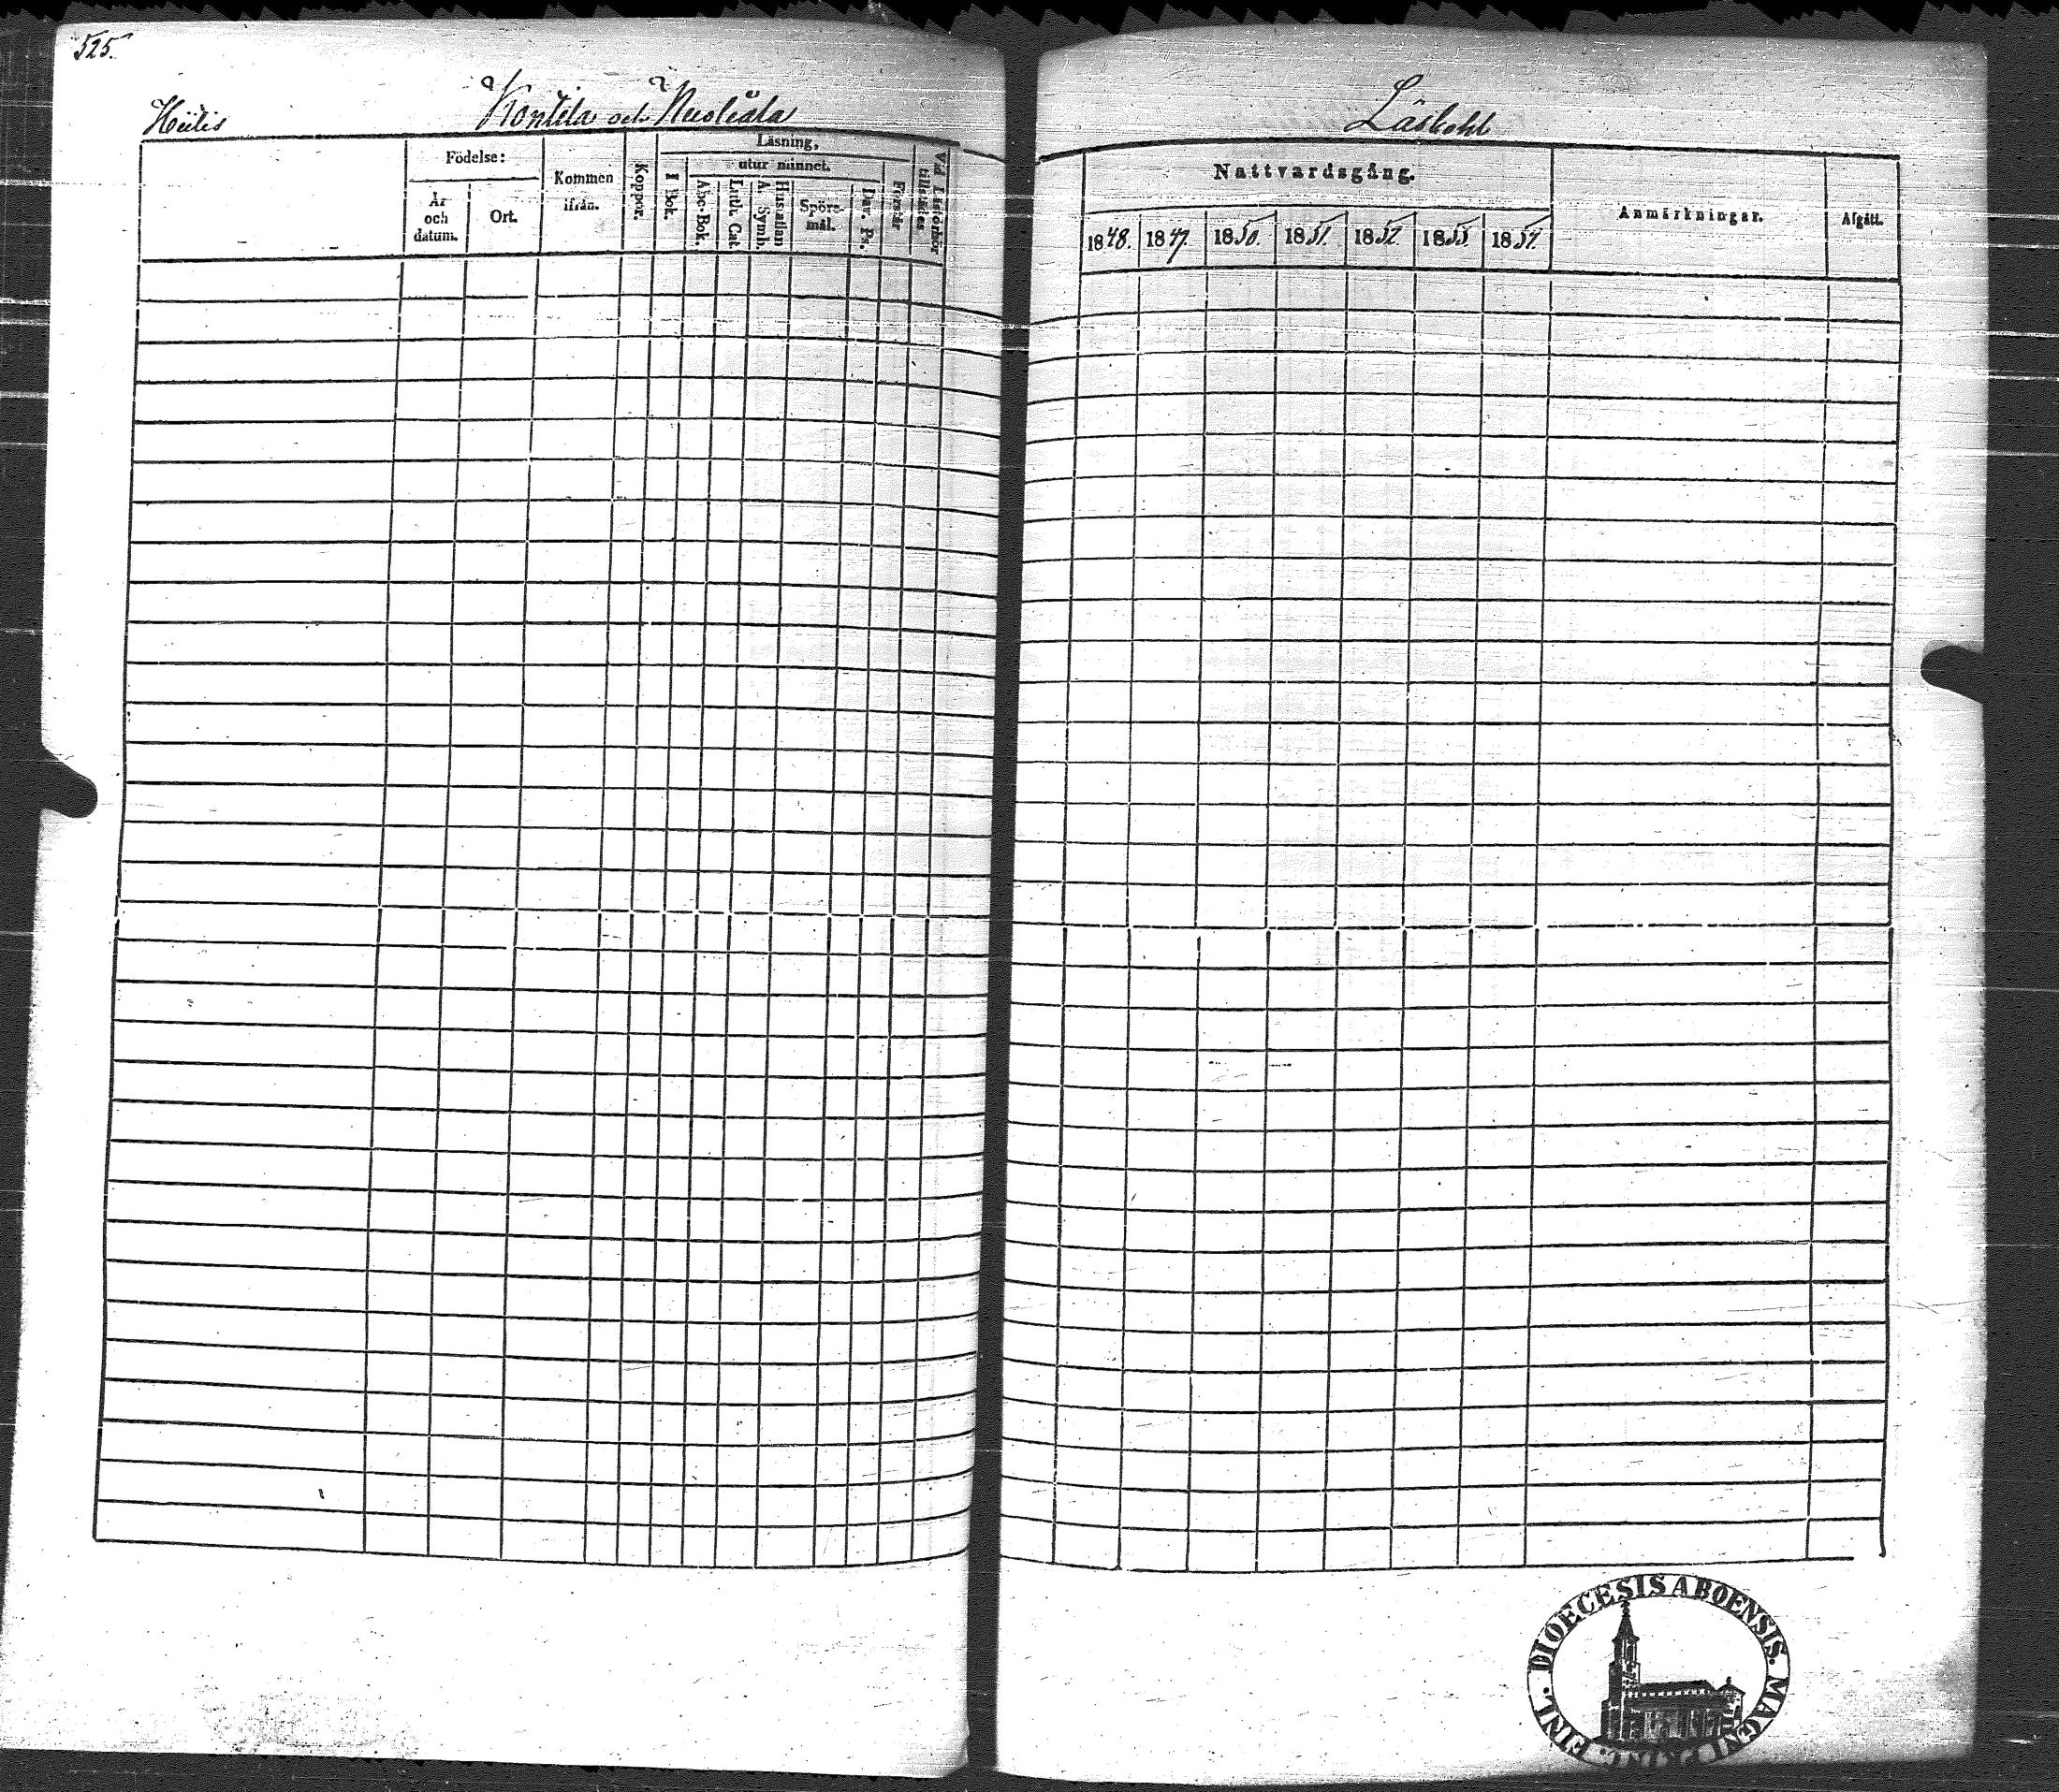 525.
Hülis Kontila och Nuoliala
Födelse:
År och datum.
Ort.
Kommen ifrån.
Koppor.
Läsning,
I Bok.
utur minnet.
Abc-Bok.
Luth. Cat.
Hustaflan A. Symb.
Spörs-mål.
Dav. Ps.
Förstår
Vid Läsförhör tillstädes
Läsbohl
Nattvardsgång.
1848. 1849. 1850. 1851. 1852. 1853. 1854.
Anmärkningar.
Afgått.
DIOECESIS ABOENSIS. MAGNI PRINC. FINL.